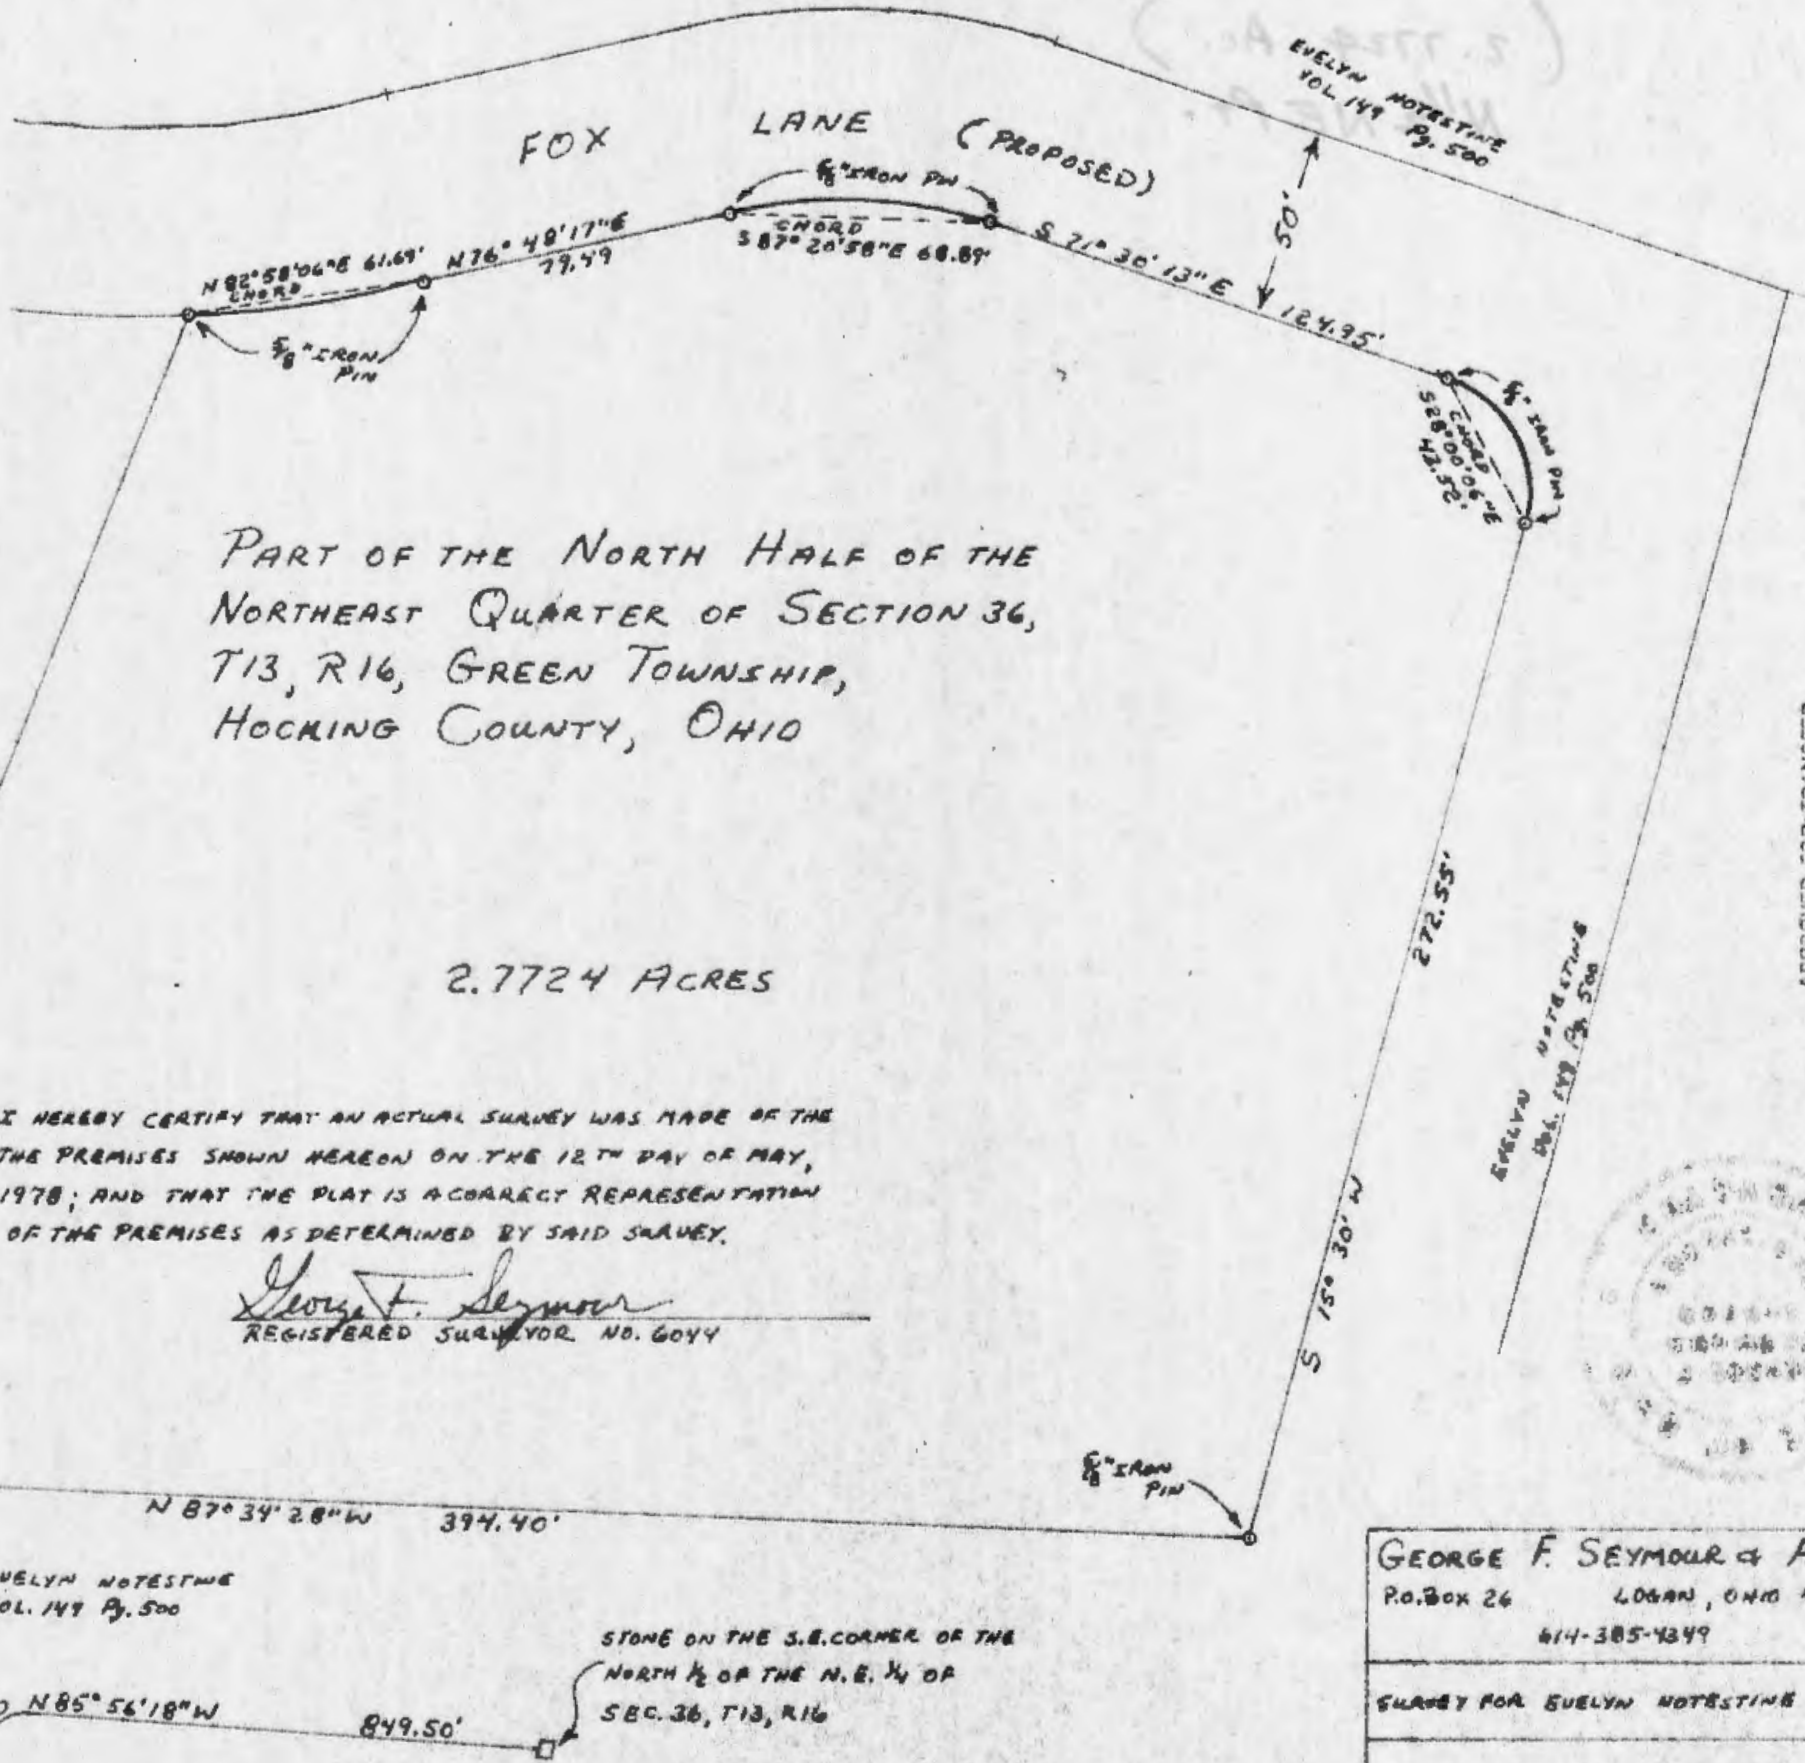 (2.7724 Ac.)
EVELYN NOTESTINE
VOL. 149 Pg. 500
FOX LANE (PROPOSED)
5/8" IRON PIN
50'
N 82° 58' 06" E 61.69'
CHORD
N 76° 48' 17" E
79.49
CHORD
S 87° 20' 58" E 68.89'
S 71° 30' 13" E 124.95'
5/8" IRON
PIN
5/8" IRON PIN
CHORD
S 28° 00' 06" E
43.52'
PART OF THE NORTH HALF OF THE
NORTHEAST QUARTER OF SECTION 36,
T13, R16, GREEN TOWNSHIP,
HOCKING COUNTY, OHIO
272.55'
S 15° 30' W
EVELYN NOTESTINE
VOL. 149 Pg. 500
2.7724 ACRES
I HEREBY CERTIFY THAT AN ACTUAL SURVEY WAS MADE OF THE
THE PREMISES SHOWN HEREON ON THE 12TH DAY OF MAY,
1978; AND THAT THE PLAT IS A CORRECT REPRESENTATION
OF THE PREMISES AS DETERMINED BY SAID SURVEY.
George F. Seymour
REGISTERED SURVEYOR NO. 6044
5/8" IRON
PIN
N 87° 34' 28" W 394.40'
VELYN NOTESTINE
OL. 149 Pg. 500
STONE ON THE S.E. CORNER OF THE
NORTH 1/2 OF THE N.E. 1/4 OF
SEC. 36, T13, R16
N 85° 56' 18" W 849.50'
GEORGE F. SEYMOUR & A
P.O. BOX 26 LOGAN, OHIO
614-385-4349
SURVEY FOR EVELYN NOTESTINE